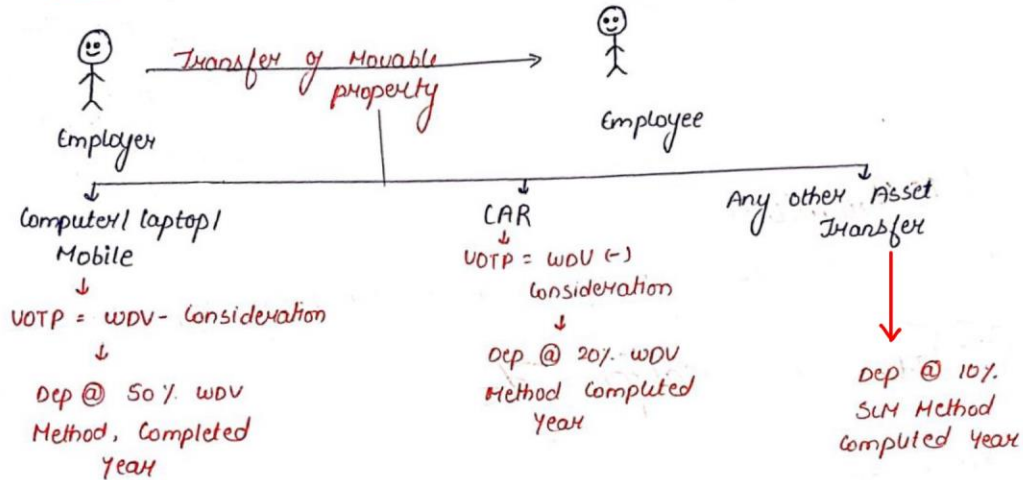 Transfer of Movable
property
Employer
Employee
Computer/ laptop/
Mobile
VOTP = WDV - Consideration
Dep @ 50% WDV
Method, Completed
Year
CAR
VOTP = WDV (-)
Consideration
Dep @ 20% WDV
Method Computed
Year
Any other Asset
Transfer
Dep @ 10%
SLM Method
Computed Year